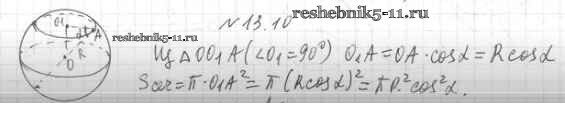 N 13.10
reshebnik5-11.ru
O₁
α
A
R
O
reshebnik5-11.ru
Из △OO₁A (∠O₁=90°) O₁A = OA·cosα = Rcosα
Sсеч = π·O₁A² = π(Rcosα)² = πR²cos²α.